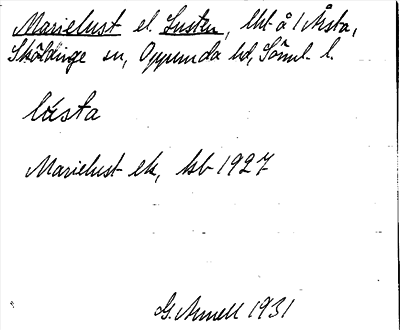 Marielust el. Lusten, lht å 1 Årsta,
Sköldinge sn, Oppunda hd, Söml. l.
lásta
Marielust ek, kb 1927
G. Arnell 1931